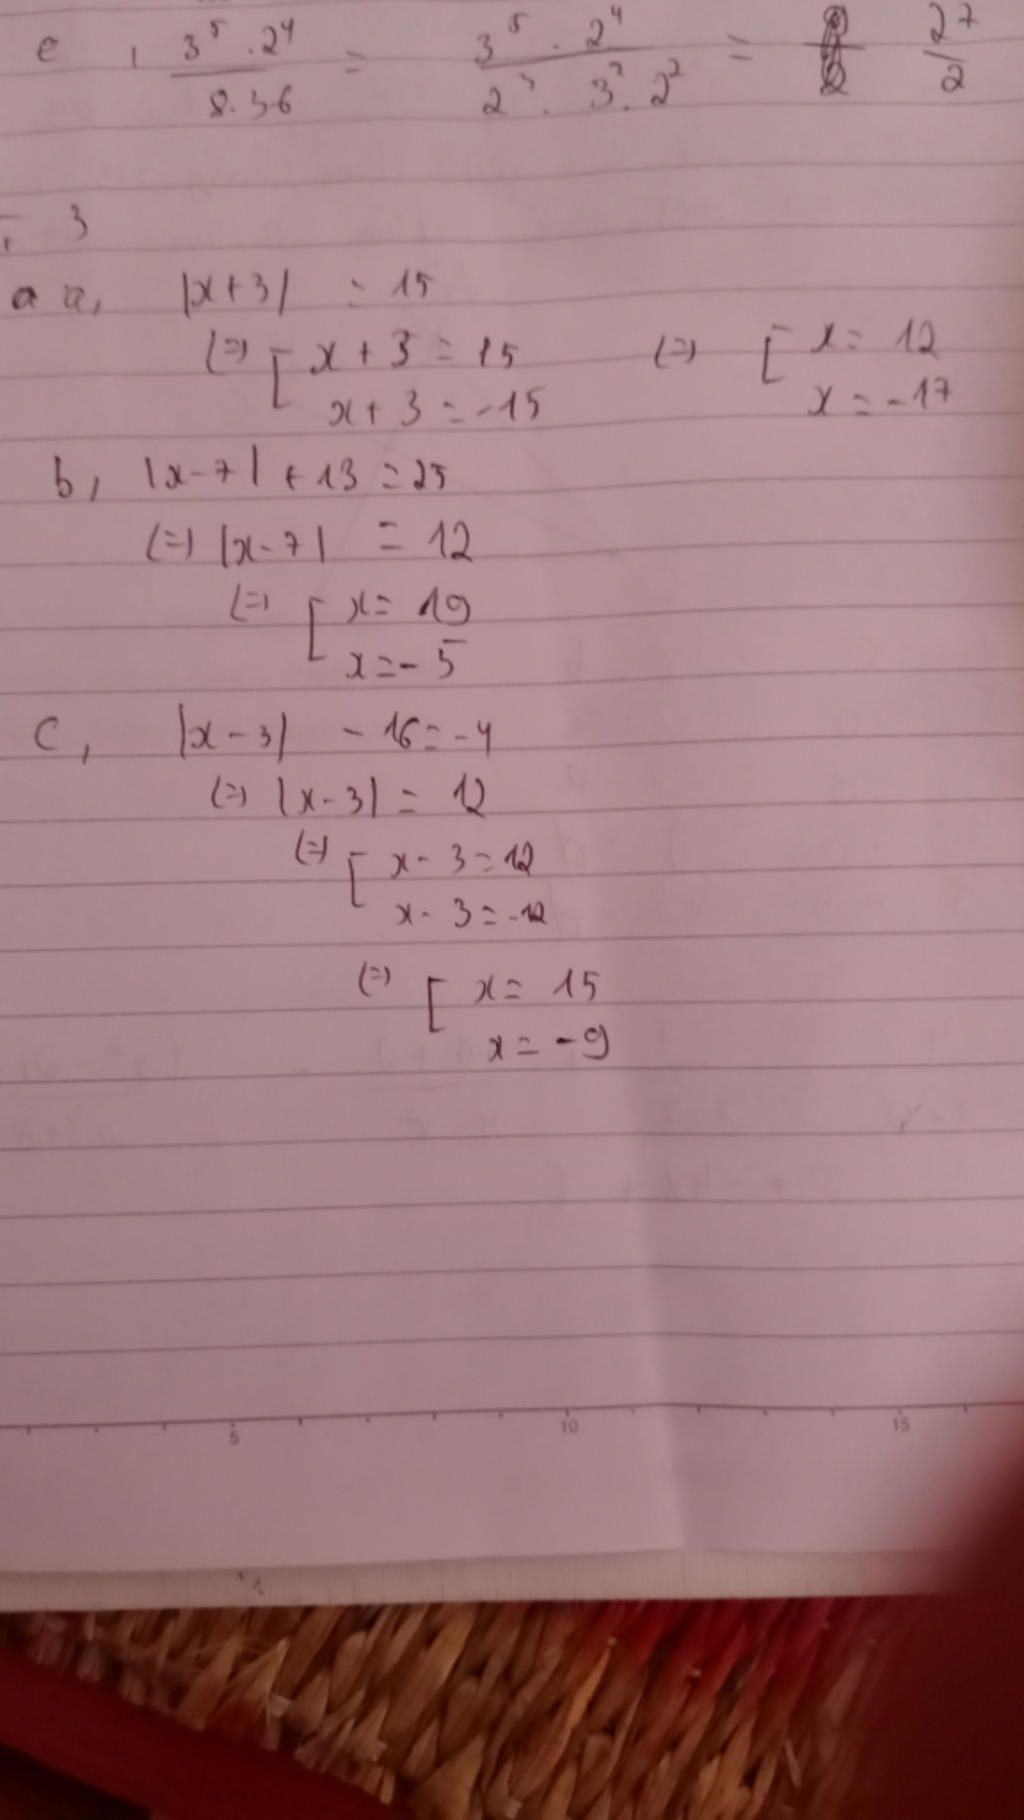 e, 3⁵ . 2⁴ / 8.36 = 3⁵ . 2⁴ / 2³ . 3² . 2² = 27 / 2
3
a a, |x+3| = 15
(=) [ x + 3 = 15 (=) [ x = 12
x + 3 = -15 x = -17
b, |x-7| + 13 = 25
(=) |x-7| = 12
(=) [ x = 19
x = -5
c, |x-3| - 16 = -4
(=) |x-3| = 12
(=) [ x - 3 = 12
x - 3 = -12
(=) [ x = 15
x = -9
5 10 15